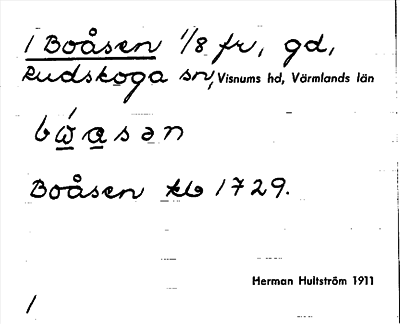 1 Boåsen 1/8 fr, gd,
Rudskoga sn, Visnums hd, Värmlands län
bώɑsən
Boåsen kb 1729.
Herman Hultström 1911
/